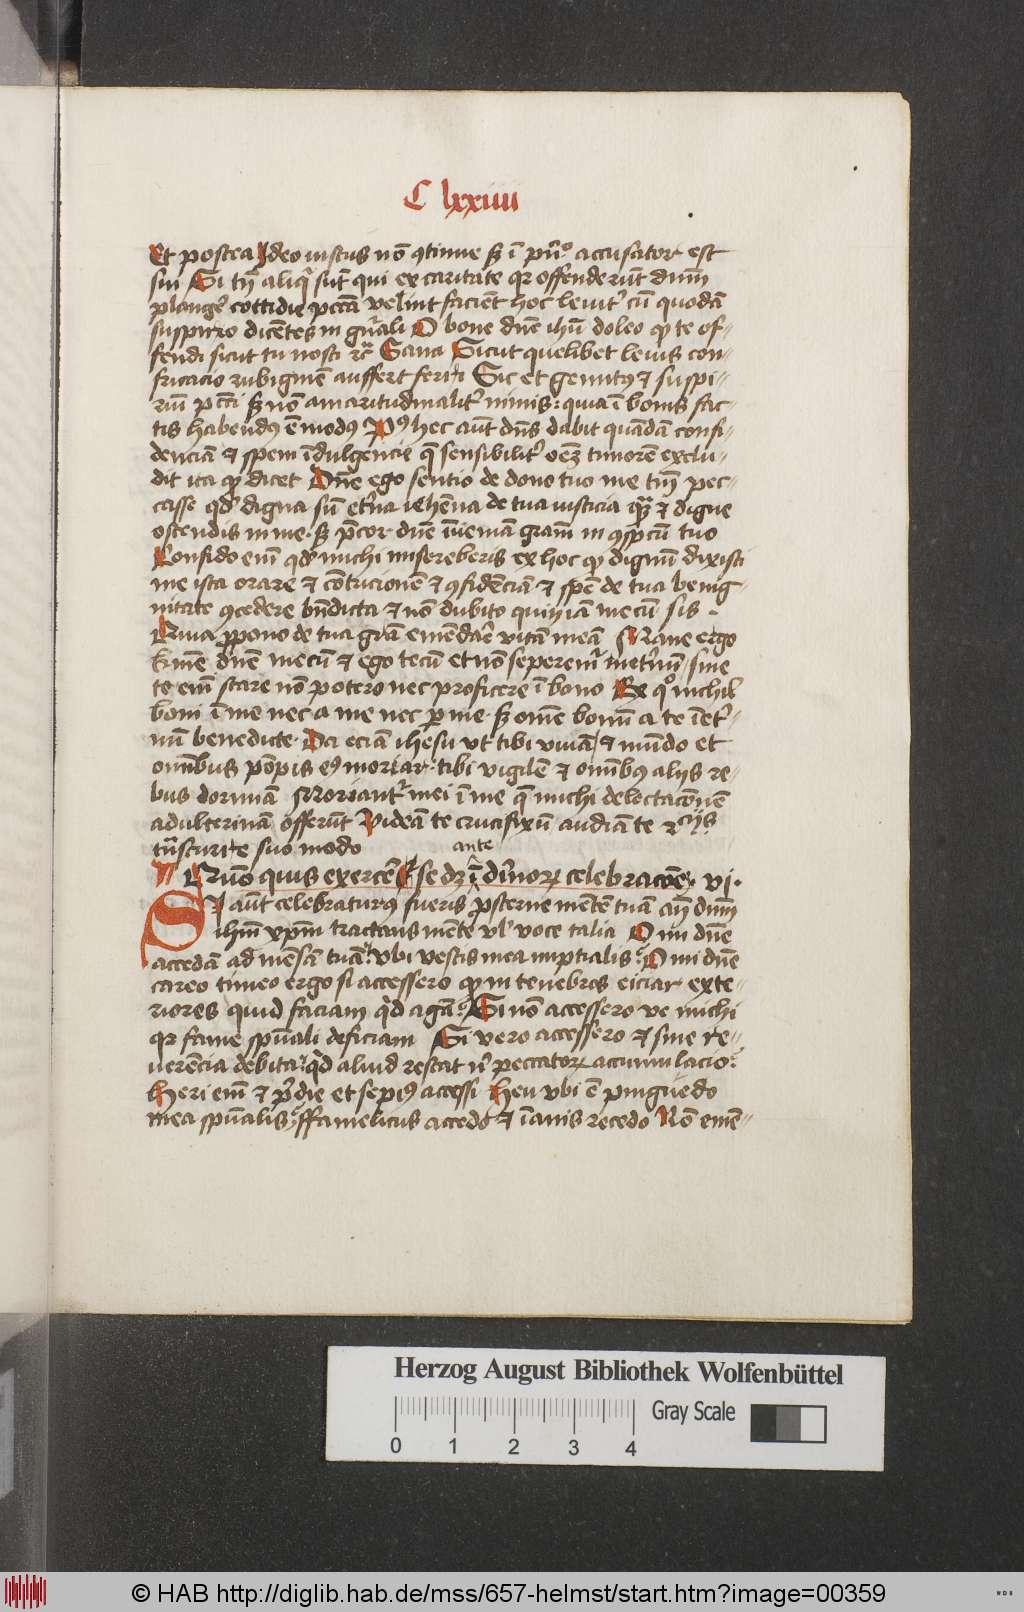 C lxxiiii
Et postea Ideo iustus nō ꝯtinue sꝫ ī pn̄ᵒ accusator est
sui Si tn̄ aliqͥ sūt qui ex caritate qꝛ offenderūt dnm̄
plangeͬ cottidie pctā vellint faciēt hoc leuitͬ cū quodā
suspirio dicētes in gn̄ali O bone dn̄e ihū doleo ꝙ te of-
fendi sicut tu nosti ⁊c̄ Sana Sicut quelibet leuis con-
fricacio rubiginē auffert ferri Sic et gemitꝰ ⁊ suspi-
riū pcc̄i sꝫ nō amaritudinalitͬ nimis : quia ī bonis fac-
tis habendꝰ ē modꝰ Pꝰ hec aūt dn̄s dabit quādā confi-
denciā ⁊ spem īdulgencie q̄ sensibilitͬ oēꝫ timorē exclu-
dit ita ꝙ dicet Dn̄e ego sentio de dono tuo me tm̄ pec-
casse qd̓ digna sū etͬna iehēna de tua iusticia ⁊ digne
ostendis in me . sꝫ p̄cor dn̄e īueniā grām in ꝯspc̄ū tuo
Confido em̄ qd̓ michi misereberis ex hoc ꝙ dignū dixisti
me ista orare ⁊ cōtricionē ⁊ ꝯfidēciā ⁊ spē de tua benig-
nitate ꝯcedere bn̄dicta ⁊ nō dubito quin iā mecū sis .
Quia ꝓpono de tua grā emēdaͬe vitā meā Mane ergo
dn̄e mecū ⁊ ego tecū et nō seperemͬ inetͬnū . sine
te em̄ stare nō potero nec proficere ī bono Ex qͦ nichil
boni ī me nec a me nec ꝑ me . sꝫ om̄e bonū a te īetͬ-
nū benedicte . Da eciā ihesu vt tibi viuā ⁊ mūdo et
om̄ibus pōpis eꝰ moriar . tibi vigilē ⁊ om̄ibꝰ alijs re-
bus dormiā Moriantͬ mei ī me q̄ michi delectac̄onē
adulterinā offerūt Videā te crucifixū audiā te
suo modo
ante
Quō quis exerceͬ se dꝫ ī diu̅orꝝ celebrac̄oē . vj .
SI aūt celebraturꝰ fueris ꝓsterne mētē tuā an̄ dnm̄
ihm̄ xpm̄ tractans mēte vl̓ voce talia O mi dn̄e
accedā ad mēsā tuā . vbi vestis mea nuptialis . O mi dn̄e
careo timeo ergo si accessero ꝙ in tenebres eiciar exte-
riores quid faciam qͥd agā . Si nō accessero ve michi
qꝛ fame spūali deficiam Si vero accessero ⁊ sine re-
uerēcia debita . qͥd aliud restat nͥ peccatorꝝ accumulacio .
Heri em̄ ⁊ pͥdie et sepiꝰ accessi Heu vbi ē pinguedo
mea spūalis . ffamelicus accedo ⁊ īanis recedo Nō emē-
Herzog August Bibliothek Wolfenbüttel
Gray Scale
0 1 2 3 4
© HAB http://diglib.hab.de/mss/657-helmst/start.htm?image=00359